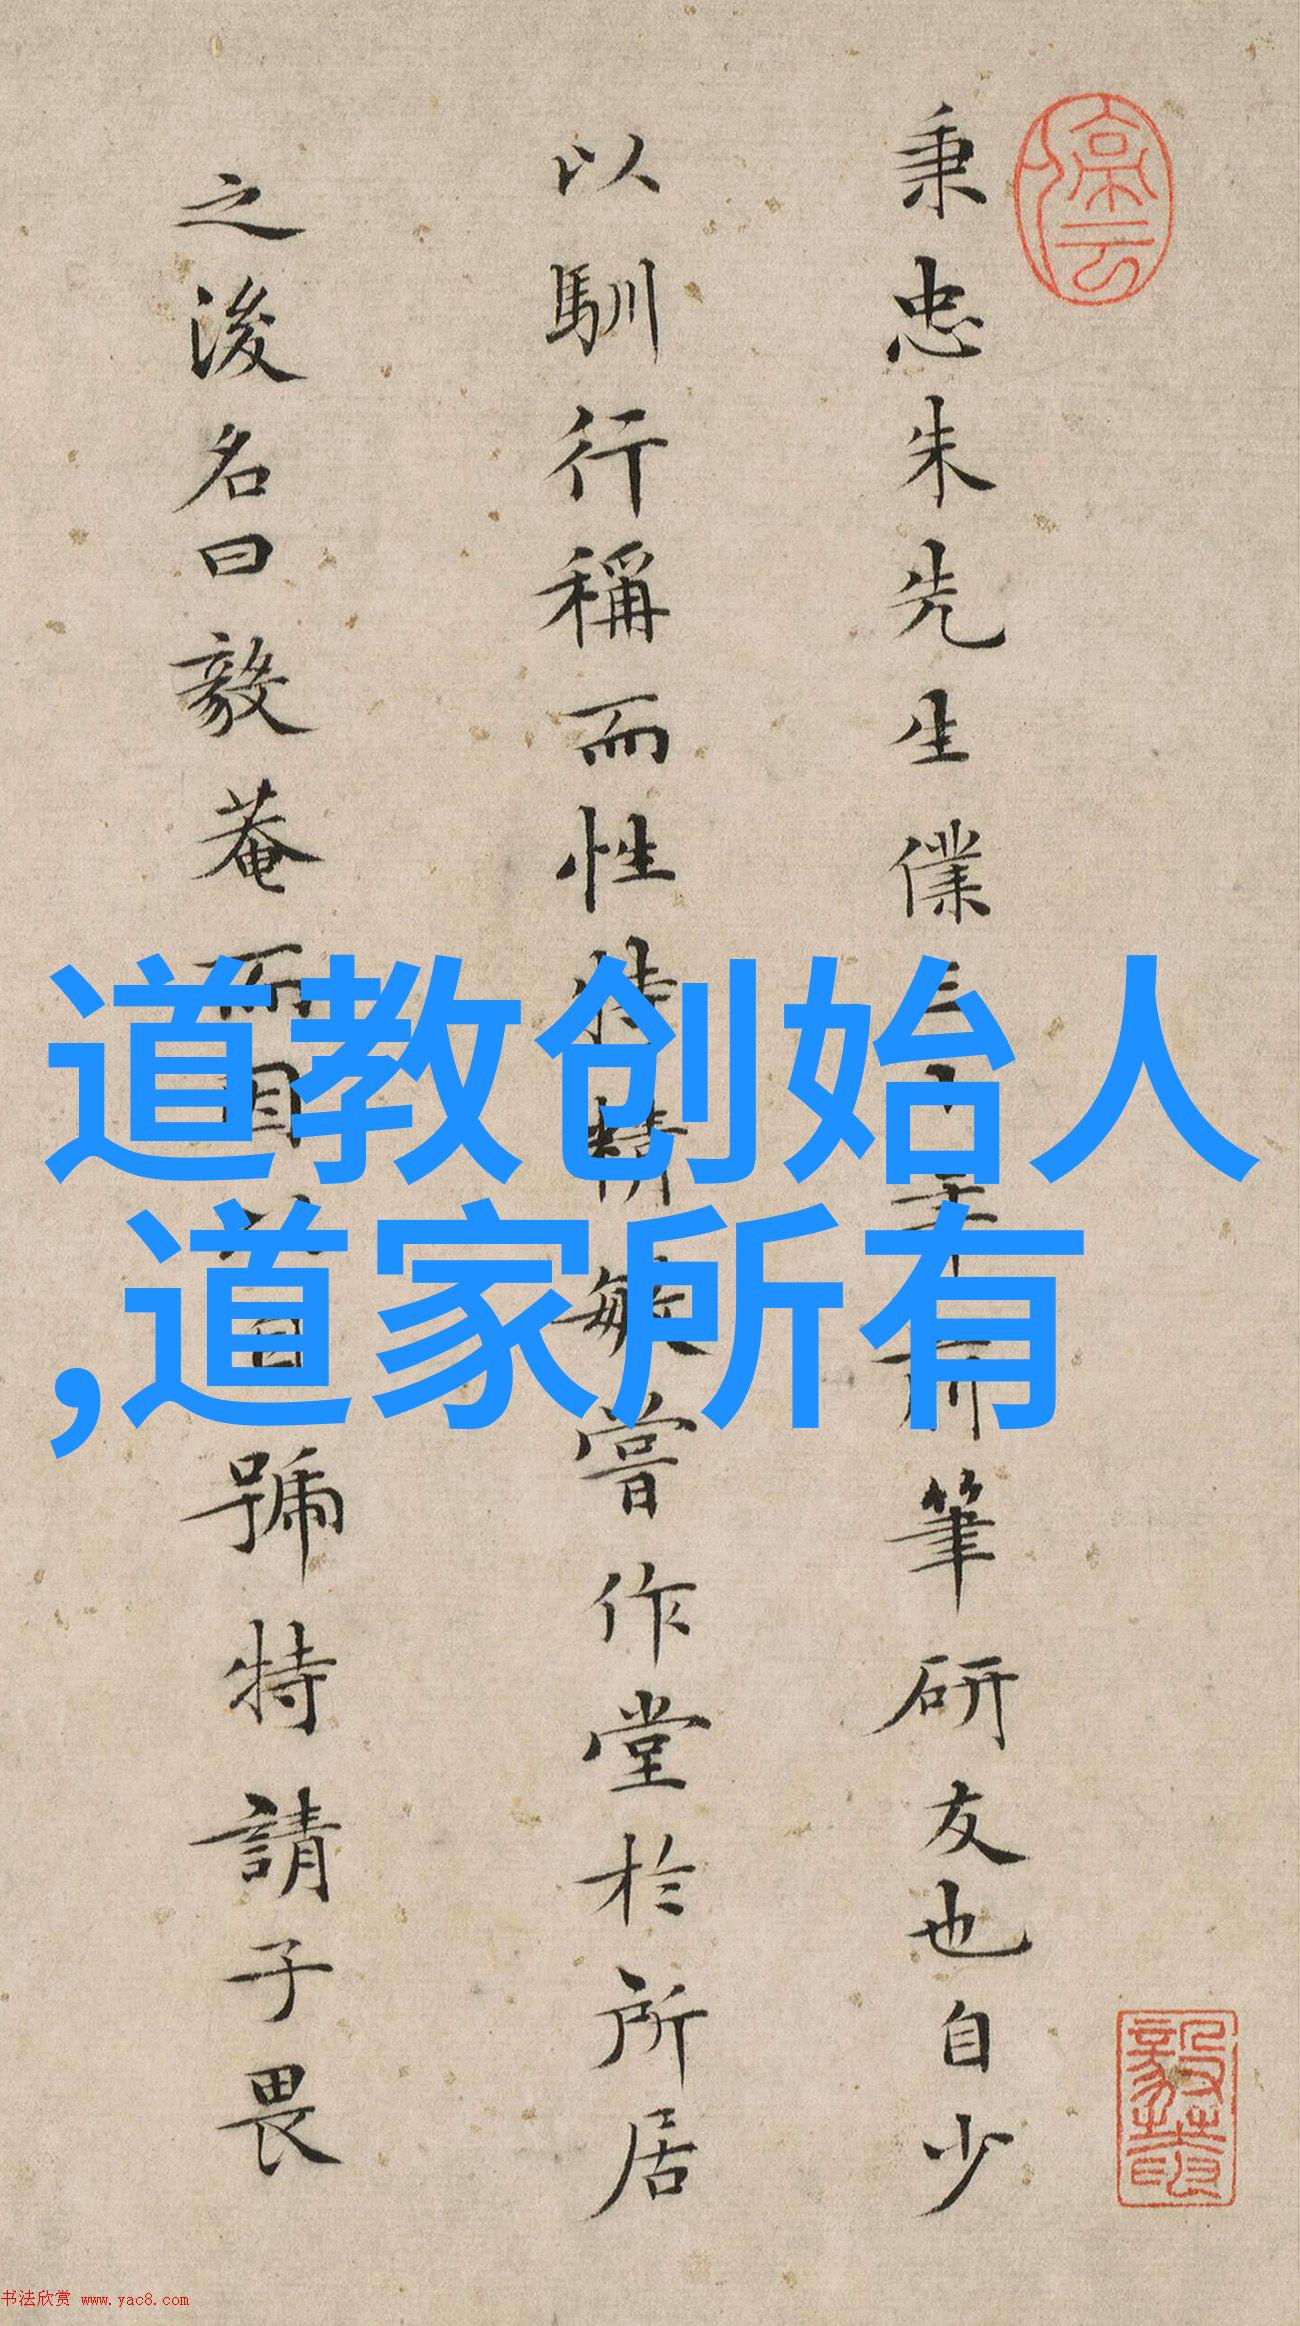 秉忠朱先生僕三十年前筆研友也自少
以馴行稱而性特精敏嘗作堂於所居
之後名曰毅菴而因以自號特請子畏
道教创始人
,道家所有
书法欣赏 www.yac8.com